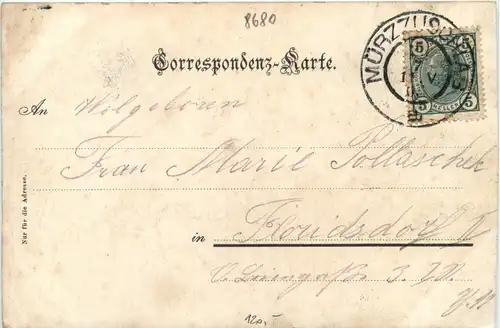 8680
Correspondenz-Karte.
MÜRZZUSCHLAG
5 5
5 HELLER 5
An Wolgeboren
Frau Marie Pollaschek
in Floridsdorf
Nur für die Adresse.
120,-